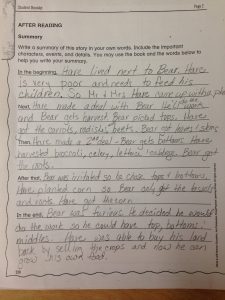 Student Booklet Page 2
AFTER READING
Summary
Write a summary of this story in your own words. Include the important
characters, events, and details. You may use the book and the words below to
help you write your summary.
In the beginning, Hare lived next to Bear. Hare
is very poor and needs to feed his
children. So Mr & Mrs Hare came up with a plan
Next, Hare made a deal with Bear. He'll do the work
and Bear gets harvest. Bear picked tops. Hares
got the carrots, radishes, beets. Bear got
Then, Hare made a 2nd deal - Bear gets bottoms. Hare
harvested broccoli, celery, lettuce, cabbage. Bear got
the roots.
After that, Bear was irritated so he chose tops & bottoms.
Hare planted corn so Bear only got the
and roots. Hare got the corn
In the end, Bear was furious. He decided he would
do the work so he could have top, bottoms,
middles. Hare was able to buy his land
back by selling the crops and now he can
grow his own food.